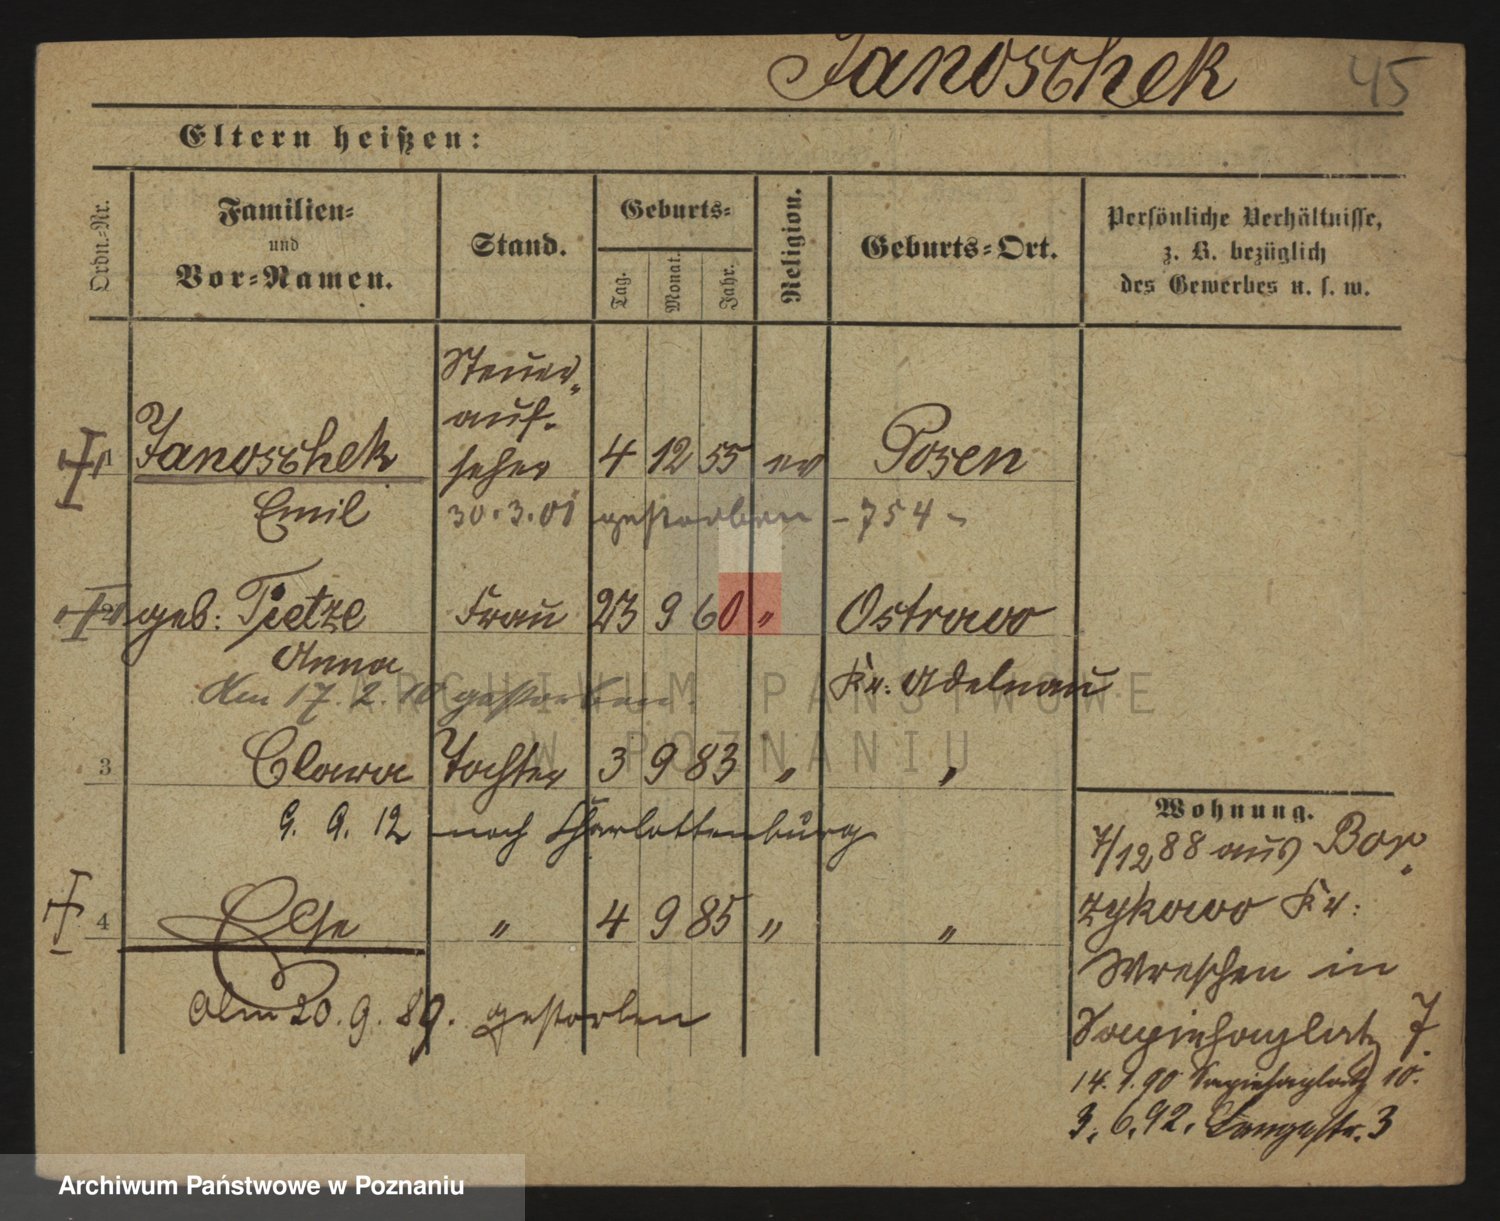 Janoschek 45
Eltern heißen:
Ordn.-Nr.
Familien-
und
Vor-Namen.
Stand.
Geburts-
Tag.
Monat.
Jahr.
Religion.
Geburts-Ort.
Persönliche Verhältnisse,
z. B. bezüglich
des Gewerbes u. s. w.
Steuer-
auf-
1 Janoschek seher 4 12 55 ev Posen
Emil 30.3.01 gestorben - 754 -
2 geb: Tietze Frau 23 9 60 " Ostrowo
Anna
Kr: Adelnau
Am 17.2.10 gestorben.
3 Clara Tochter 3 9 83 " "
9. 9. 12 nach Charlottenburg
4 Else " 4 9 85 " "
Am 20.9.89. gestorben
Wohnung.
7/12 88 aus Bor-
zykowo Kr:
Wreschen in
Sapiehaplatz 7.
14.1.90 Sapiehaplatz 10.
3.6.92. Langestr. 3
ARCHIWUM PAŃSTWOWE
W POZNANIU
Archiwum Państwowe w Poznaniu